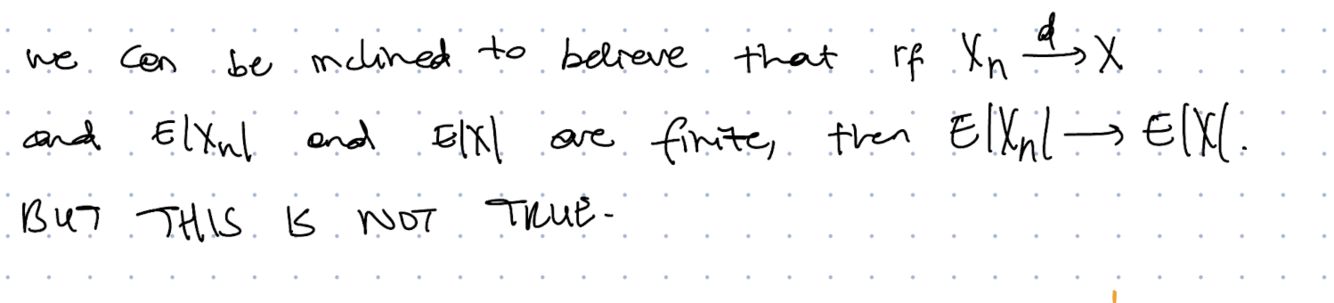 we can be inclined to believe that if Xn →d X
and E|Xn| and E|X| are finite, then E|Xn| → E|X|.
BUT THIS IS NOT TRUE.